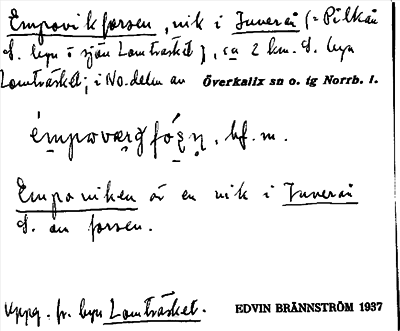 Empovikforsen, vik i Juverså (= Pilkån
S. byn i sjön Lomträsket), ca 2 km. S. byn
Lomträsket; i NO. delen av Överkalix sn o. tg Norrb. l.
bf. m.
Empoviken är en vik i Juverså
S. om forsen.
Uppg. fr. byn Lomträsket.
EDVIN BRÄNNSTRÖM 1937